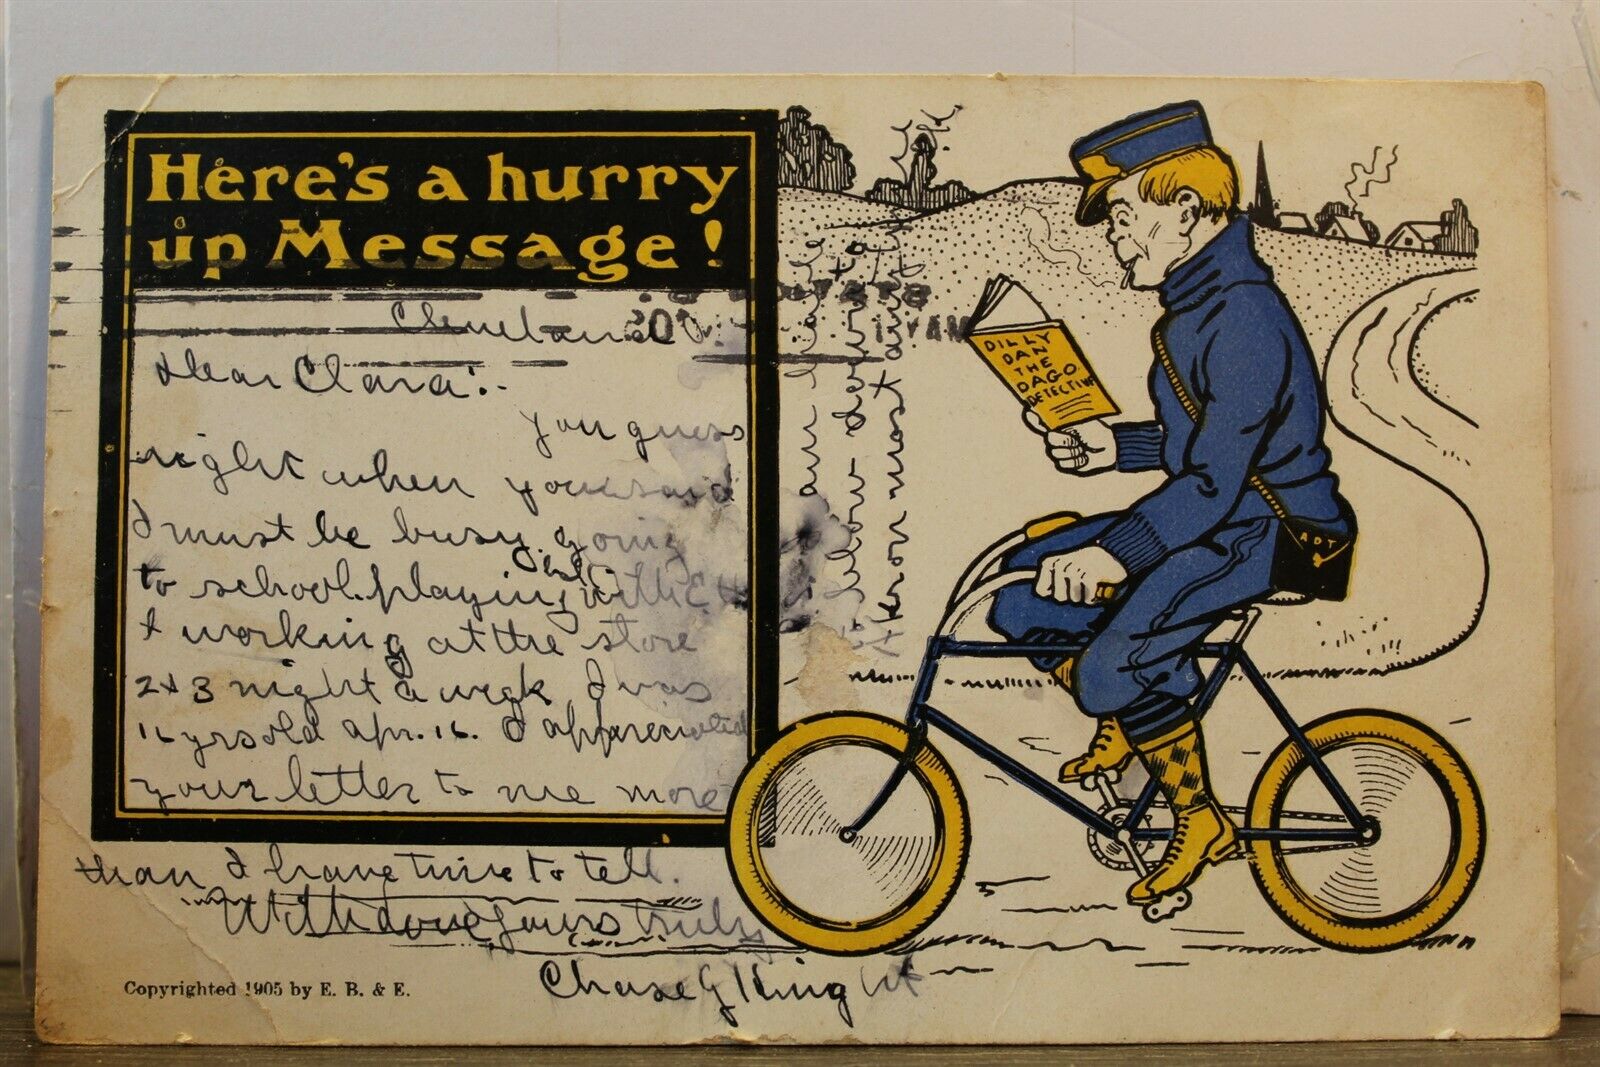 Here's a hurry
up Message!
Cleveland
Dear Clara:-
You guess
right when you said
I must be busy going
to school. playing
with
& working at the store
2 & 3 night a week I was
16 yrs old Apr. 16. I appreciated
your letter to me more
than I have time to tell.
With love yours truly
Chase G Knight
Akron most
DILLY
DAN
THE
DAGO
DETECTIVE
ADT
Copyrighted 1905 by E. B. & E.